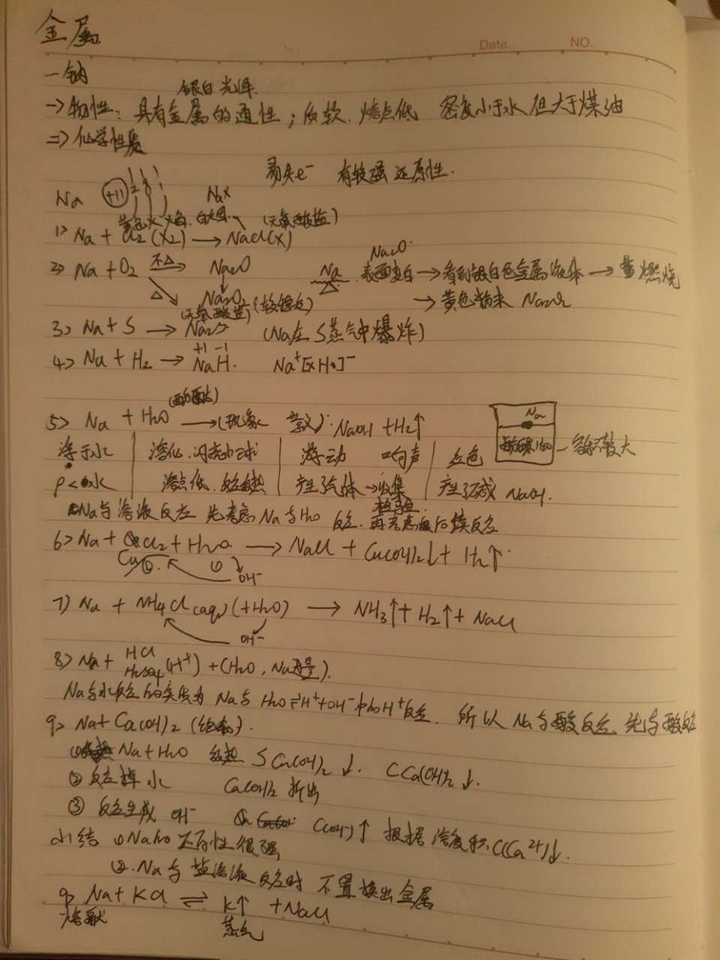 金属
Date. NO.
一 钠
银白光泽
一> 物性: 具有金属的通性; 质软. 熔点低 密度小于水 但大于煤油
二> 化学性质
易失e⁻ 有较强还原性.
Na +11 2 8 1 NaX
黄色火焰. 白烟 (无氧酸盐)
1> Na + Cl₂ (X₂) → NaCl(X)
2> Na + O₂ 不△ → Na₂O Na △ 表面变白 Na₂O → 看到银白色金属液体 → 燃烧
△ → Na₂O₂ (较稳定) → 黄色粉末 Na₂O₂
3> Na + S → Na₂S (Na在S蒸气中爆炸)
4> Na + H₂ → +1 -1 NaH. Na⁺[×H•]⁻
5> Na + H₂O (酚酞) → (现象 ): NaOH + H₂↑ Na
浮于水 熔化. 闪亮小球 游动 响声 红色
ρ<水 熔点低. 反应放热 产生气体 → 收集 检验 产生碱 NaOH.
Na与溶液反应 先考虑 Na与H₂O 反应. 再考虑后续反应
6> Na + CuCl₂ + H₂O → NaCl + Cu(OH)₂↓ + H₂↑
① OH⁻
7> Na + NH₄Cl (aq) (+H₂O) → NH₃↑ + H₂↑ + NaCl
OH⁻
8> Na + HCl H₂SO₄ (H⁺) + (H₂O, Na过量).
Na与水反应的实质为 Na与 H₂O⇌H⁺+OH⁻ 中的H⁺反应. 所以 Na与酸反应 先与酸反应
9> Na + Ca(OH)₂ (饱和).
① Na + H₂O 放热 S Ca(OH)₂ ↓. C Ca(OH)₂ ↓.
② 反应掉水 Ca(OH)₂ 析出
③ 反应生成 OH⁻ C(OH⁻)↑ 根据 溶度积. C(Ca²⁺)↓.
小结 ① Na 还原性很强
② Na与盐溶液反应时 不置换出金属
9> Na + KCl ⇌ K↑ + NaCl
熔融 蒸气